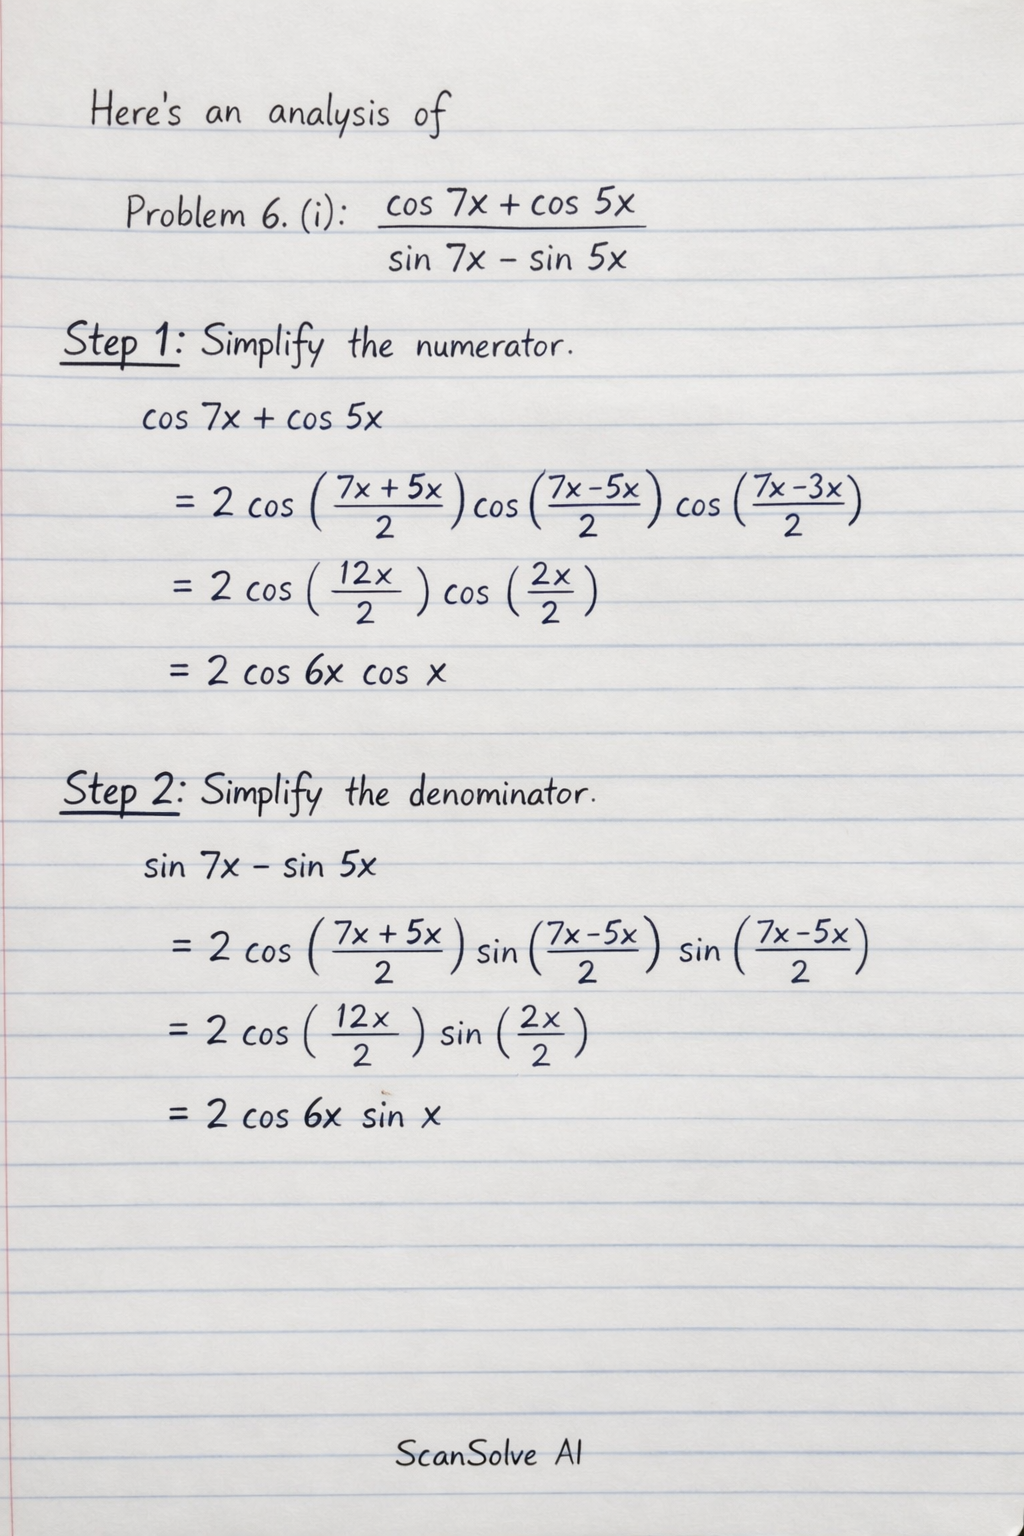 Here's an analysis of
Problem 6. (i): cos 7x + cos 5x / sin 7x − sin 5x
Step 1: Simplify the numerator.
cos 7x + cos 5x
= 2 cos (7x + 5x / 2) cos (7x − 5x / 2) cos (7x − 3x / 2)
= 2 cos (12x / 2) cos (2x / 2)
= 2 cos 6x cos x
Step 2: Simplify the denominator.
sin 7x − sin 5x
= 2 cos (7x + 5x / 2) sin (7x − 5x / 2) sin (7x − 5x / 2)
= 2 cos (12x / 2) sin (2x / 2)
= 2 cos 6x sin x
ScanSolve AI